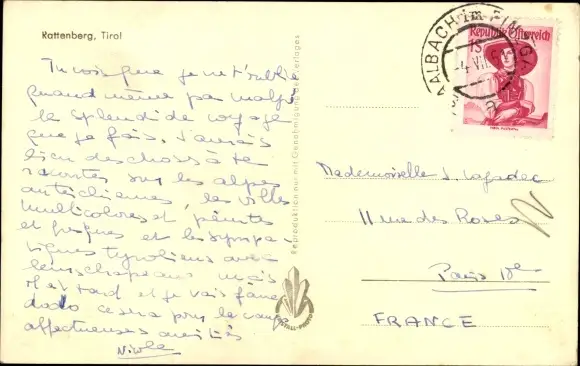 Rattenberg, Tirol
Tu vois que je ne t'oublie
quand même pas malgré
le splendide voyage
que je fais. J'aurais
bien des choses à te
raconter sur les alpes
autrichiennes, les villes
multicolores et peintes
et fresques et les sympa-
tiques tyroliens avec
leurs chapeaux mais
il est tard et je vais faire
dodo ce sera pour le
affectueuses amitiés
Nicole
Reproduktion nur mit Genehmigung des Verlages
SAALBACH im PINZGAU
Republik Österreich
Mademoiselle J. Lagadec
11 rue des Roses
Paris 18e
FRANCE